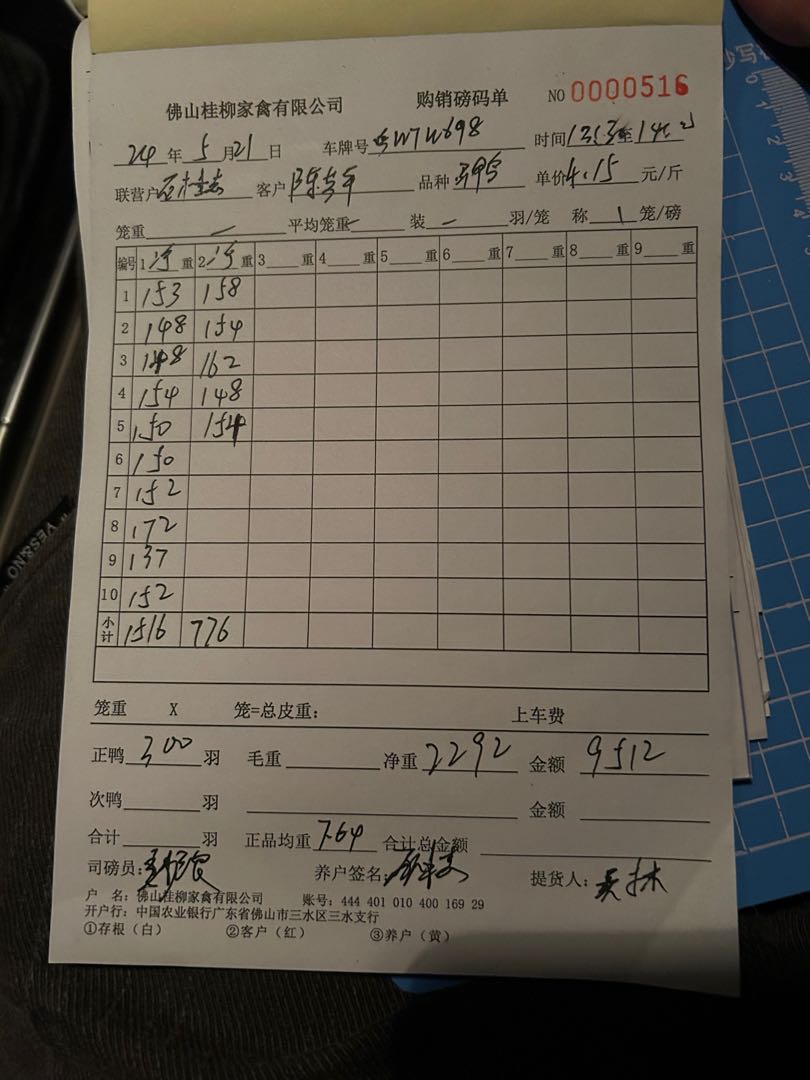 佛山桂柳家禽有限公司 购销磅码单 NO 0000516
24 年 5 月 21 日 车牌号 时间 至
联营户 客户 品种 单价 4.15 元/斤
笼重 — 平均笼重 — 装 — 羽/笼 称 1 笼/磅
编号 1 净 重 2 净 重 3 重 4 重 5 重 6 重 7 重 8 重 9 重
1 153 158
2 148 154
3 148 162
4 154 148
5 150 154
6 150
7 152
8 172
9 137
10 152
小计 1516 776
笼重 X 笼=总皮重: 上车费
正鸭 300 羽 毛重 净重 2292 金额 9512
次鸭 羽 金额
合计 羽 正品均重 7.64 合计总金额
司磅员: 养户签名: 提货人:
户 名: 佛山桂柳家禽有限公司 账号: 444 401 010 400 169 29
开户行: 中国农业银行广东省佛山市三水区三水支行
①存根(白) ②客户(红) ③养户(黄)
YES&NO